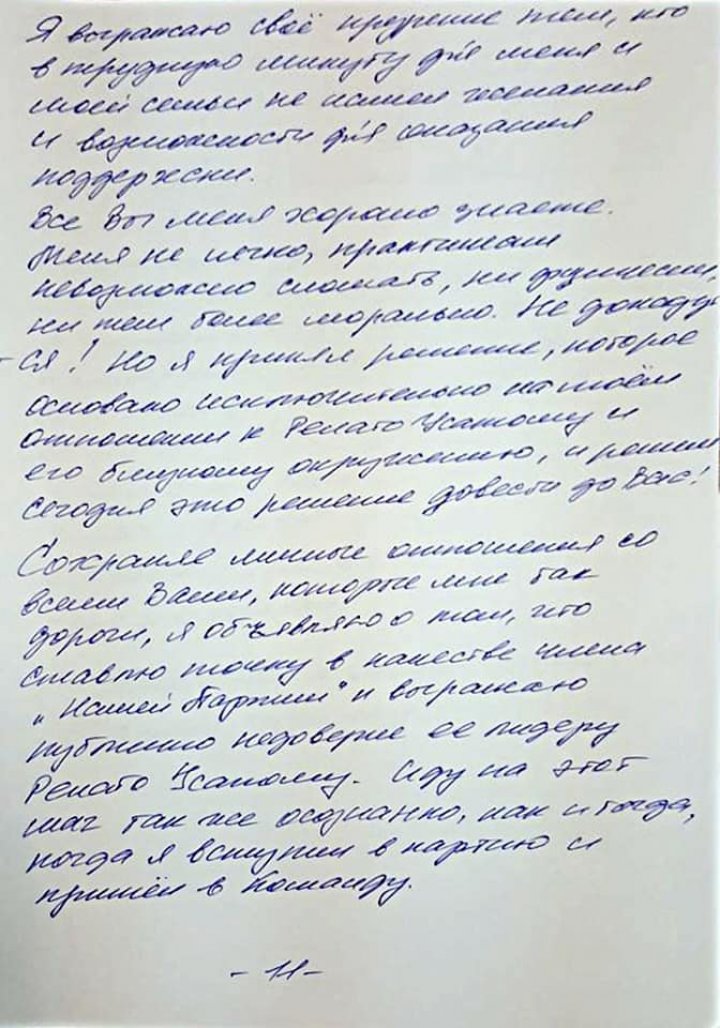 Я выражаю своё презрение тем, кто
в трудную минуту для меня и
моей семьи не имел желания
и возможности для оказания
поддержки.
Все Вы меня хорошо знаете.
Меня не легко, практически
невозможно сломать, ни физически,
ни тем более морально. Не дождут-
ся! Но я принял решение, которое
основано исключительно на моём
отношении к Ренато Усатому и
его близкому окружению, и решил
сегодня это решение довести до Вас!
Сохраняя личные отношения со
всеми Вами, которые мне так
дороги, я объявляю о том, что
ставлю точку в качестве члена
„Нашей Партии" и выражаю
публично недоверие её лидеру
Ренато Усатому. Иду на этот
шаг так же осознанно, как и тогда,
когда я вступил в партию и
пришёл в Команду.
- 11 -